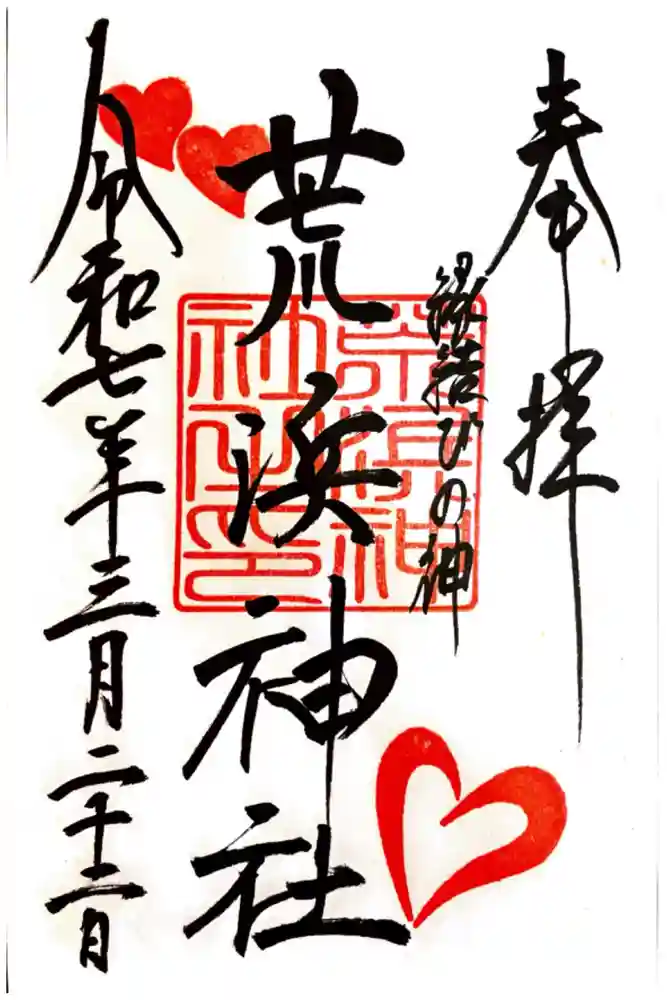 奉拝
縁結びの神
荒浜神社
令和七年三月二十二日